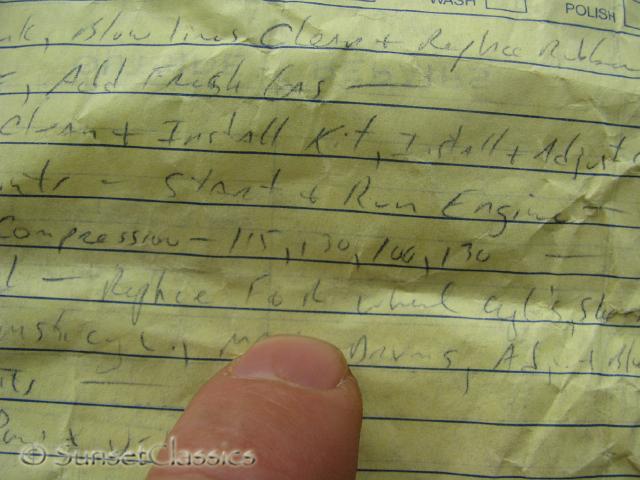 WASH POLISH
Blow lines Clean + Replace Rubber
, Add Fresh Gas —
Clean + Install Kit, Install + Adjust
— Start + Run Engine —
Compression — 115, 130, 100, 130 —
— Replace Four wheel cyl's,
cyl., Drums,
—
© SunsetClassics